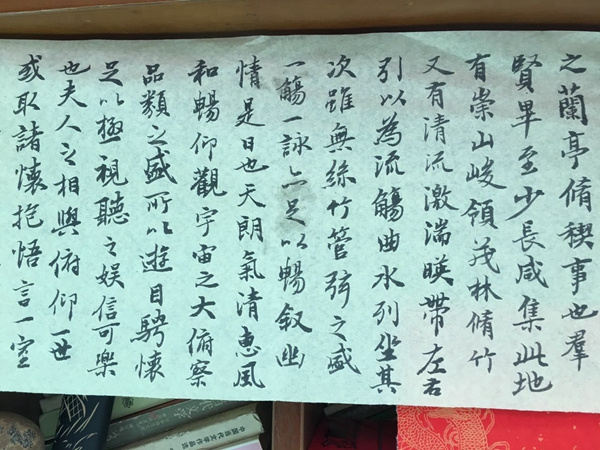 之蘭亭脩稧事也羣
賢畢至少長咸集此地
有崇山峻領茂林脩竹
又有清流激湍暎帶左右
引以為流觴曲水列坐其
次雖無絲竹管弦之盛
一觴一詠亦足以暢叙幽
情是日也天朗氣清惠風
和暢仰觀宇宙之大俯察
品類之盛所以遊目騁懷
足以極視聽之娱信可樂
也夫人之相與俯仰一世
或取諸懷抱悟言一室
中国现代文学作品选